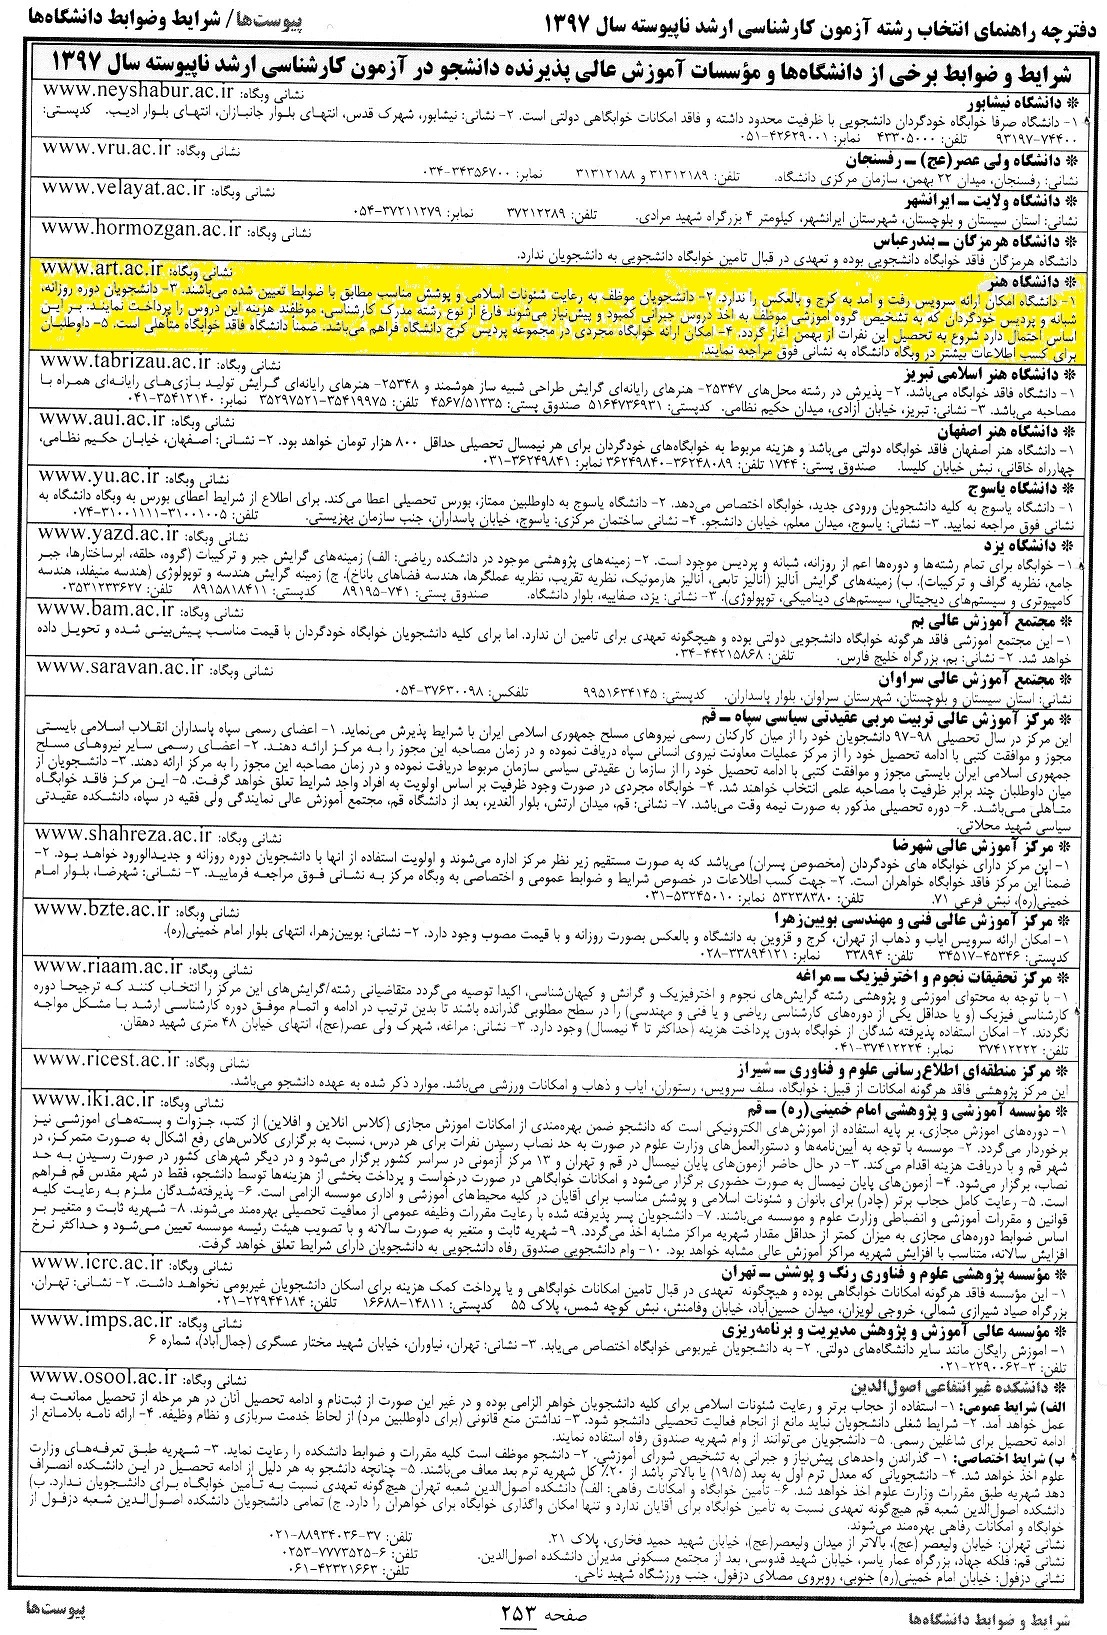 دفترچه راهنمای انتخاب رشته آزمون کارشناسی ارشد ناپیوسته سال ۱۳۹۷
پیوست‌ها/ شرایط وضوابط دانشگاه‌ها
شرایط و ضوابط برخی از دانشگاه‌ها و مؤسسات آموزش عالی پذیرنده دانشجو در آزمون کارشناسی ارشد ناپیوسته سال ۱۳۹۷
❊ دانشگاه نیشابور نشانی وبگاه: www.neyshabur.ac.ir
۱- دانشگاه صرفا خوابگاه خودگردان دانشجویی با ظرفیت محدود داشته و فاقد امکانات خوابگاهی دولتی است. ۲- نشانی: نیشابور، شهرک قدس، انتهای بلوار جانبازان، انتهای بلوار ادیب. کدپستی:
۹۳۱۹۷-۷۴۴۰۰ تلفن: ۴۳۳۰۵۰۰۰ نمابر: ۴۲۶۲۹۰۰۱-۰۵۱
❊ دانشگاه ولی عصر(عج) ــ رفسنجان نشانی وبگاه: www.vru.ac.ir
نشانی: رفسنجان، میدان ۲۲ بهمن، سازمان مرکزی دانشگاه. تلفن: ۳۱۳۱۲۱۸۹ و ۳۱۳۱۲۱۸۸ نمابر: ۳۴۳۵۶۷۰۰-۰۳۴
❊ دانشگاه ولایت ــ ایرانشهر نشانی وبگاه: www.velayat.ac.ir
نشانی: استان سیستان و بلوچستان، شهرستان ایرانشهر، کیلومتر ۴ بزرگراه شهید مرادی. تلفن: ۳۷۲۱۲۲۸۹ نمابر: ۳۷۲۱۱۲۷۹-۰۵۴
❊ دانشگاه هرمزگان ــ بندرعباس نشانی وبگاه: www.hormozgan.ac.ir
دانشگاه هرمزگان فاقد خوابگاه دانشجویی بوده و تعهدی در قبال تامین خوابگاه دانشجویی به دانشجویان ندارد.
❊ دانشگاه هنر نشانی وبگاه: www.art.ac.ir
۱- دانشگاه امکان ارائه سرویس رفت و آمد به کرج و بالعکس را ندارد. ۲- دانشجویان موظف به رعایت شئونات اسلامی و پوشش مناسب مطابق با ضوابط تعیین شده می‌باشند. ۳- دانشجویان دوره روزانه،
شبانه و پردیس خودگردان که به تشخیص گروه آموزشی موظف به اخذ دروس جبرانی کمبود و پیش‌نیاز می‌شوند فارغ از نوع رشته مدرک کارشناسی، موظفند هزینه این دروس را پرداخت نمایند. بر این
اساس احتمال دارد شروع به تحصیل این نفرات از بهمن آغاز گردد. ۴- امکان ارائه خوابگاه مجردی در مجموعه پردیس کرج دانشگاه فراهم می‌باشد. ضمناً دانشگاه فاقد خوابگاه متأهلی است. ۵- داوطلبان
برای کسب اطلاعات بیشتر در وبگاه دانشگاه به نشانی فوق مراجعه نمایند.
❊ دانشگاه هنر اسلامی تبریز نشانی وبگاه: www.tabrizau.ac.ir
۱- دانشگاه فاقد خوابگاه می‌باشد. ۲- پذیرش در رشته محل‌های ۲۵۳۴۷- هنرهای رایانه‌ای گرایش طراحی شبیه ساز هوشمند و ۲۵۳۴۸- هنرهای رایانه‌ای گرایش تولید بازی‌های رایانه‌ای همراه با
مصاحبه می‌باشد. ۳- نشانی: تبریز، خیابان آزادی، میدان حکیم نظامی. کدپستی: ۵۱۶۴۷۳۶۹۳۱ صندوق پستی: ۴۵۶۷/۵۱۳۳۵ تلفن: ۳۵۴۱۹۹۷۵-۳۵۲۹۷۵۲۱ نمابر: ۳۵۴۱۲۱۴۰-۰۴۱
❊ دانشگاه هنر اصفهان نشانی وبگاه: www.aui.ac.ir
۱- دانشگاه هنر اصفهان فاقد خوابگاه دولتی می‌باشد و هزینه مربوط به خوابگاه‌های خودگردان برای هر نیمسال تحصیلی حداقل ۸۰۰ هزار تومان خواهد بود. ۲- نشانی: اصفهان، خیابان حکیم نظامی،
چهارراه خاقانی، نبش خیابان کلیسا. صندوق پستی: ۱۷۴۴ تلفن: ۳۶۲۴۸۰۸۹-۳۶۲۴۹۸۴۰ نمابر: ۳۶۲۴۹۸۴۱-۰۳۱
❊ دانشگاه یاسوج نشانی وبگاه: www.yu.ac.ir
۱- دانشگاه یاسوج به کلیه دانشجویان ورودی جدید، خوابگاه اختصاص می‌دهد. ۲- دانشگاه یاسوج به داوطلبین ممتاز، بورس تحصیلی اعطا می‌کند. برای اطلاع از شرایط اعطای بورس به وبگاه دانشگاه به
نشانی فوق مراجعه نمایید. ۳- نشانی: یاسوج، میدان معلم، خیابان دانشجو. ۴- نشانی ساختمان مرکزی: یاسوج، خیابان پاسداران، جنب سازمان بهزیستی. تلفن: ۳۱۰۰۱۰۰۵-۳۱۰۰۱۱۱۱-۰۷۴
❊ دانشگاه یزد نشانی وبگاه: www.yazd.ac.ir
۱- خوابگاه برای تمام رشته‌ها و دوره‌ها اعم از روزانه، شبانه و پردیس موجود است. ۲- زمینه‌های پژوهشی موجود در دانشکده ریاضی: الف) زمینه‌های گرایش جبر و ترکیبات (گروه، حلقه، ابرساختارها، جبر
جامع، نظریه گراف و ترکیبات). ب) زمینه‌های گرایش آنالیز (آنالیز تابعی، آنالیز هارمونیک، نظریه تقریب، نظریه عملگرها، هندسه فضاهای باناخ). ج) زمینه گرایش هندسه و توپولوژی (هندسه منیفلد، هندسه
کامپیوتری و سیستم‌های دیجیتالی، سیستم‌های دینامیکی، توپولوژی). ۳- نشانی: یزد، صفاییه، بلوار دانشگاه. صندوق پستی: ۷۴۱-۸۹۱۹۵ کدپستی: ۸۹۱۵۸۱۸۴۱۱ تلفن: ۰۳۵۳۱۲۳۳۶۲۷
❊ مجتمع آموزش عالی بم نشانی وبگاه: www.bam.ac.ir
۱- این مجتمع آموزشی فاقد هرگونه خوابگاه دانشجویی دولتی بوده و هیچگونه تعهدی برای تامین آن ندارد. اما برای کلیه دانشجویان خوابگاه خودگردان با قیمت مناسب پیش‌بینی شده و تحویل داده
خواهد شد. ۲- نشانی: بم، بزرگراه خلیج فارس. تلفن: ۴۴۲۱۵۸۶۸-۰۳۴
❊ مجتمع آموزش عالی سراوان نشانی وبگاه: www.saravan.ac.ir
نشانی: استان سیستان و بلوچستان، شهرستان سراوان، بلوار پاسداران. کدپستی: ۹۹۵۱۶۳۴۱۴۵ تلفکس: ۳۷۶۳۰۰۹۸-۰۵۴
❊ مرکز آموزش عالی تربیت مربی عقیدتی سیاسی سپاه ــ قم
این مرکز در سال تحصیلی ۹۸-۹۷ دانشجویان خود را از میان کارکنان رسمی نیروهای مسلح جمهوری اسلامی ایران با شرایط پذیرش می‌نماید. ۱- اعضای رسمی سپاه پاسداران انقلاب اسلامی بایستی
مجوز و موافقت کتبی با ادامه تحصیل خود را از مرکز عملیات معاونت نیروی انسانی سپاه دریافت نموده و در زمان مصاحبه این مجوز را به مرکز ارائه دهند. ۲- اعضای رسمی سایر نیروهای مسلح
جمهوری اسلامی ایران بایستی مجوز و موافقت کتبی با ادامه تحصیل خود را از سازمان عقیدتی سیاسی سازمان مربوط دریافت نموده و در زمان مصاحبه این مجوز را به مرکز ارائه دهند. ۳- دانشجویان از
میان داوطلبان چند برابر ظرفیت با مصاحبه علمی انتخاب خواهند شد. ۴- خوابگاه مجردی در صورت وجود ظرفیت بر اساس اولویت به افراد واجد شرایط تعلق خواهد گرفت. ۵- این مرکز فاقد خوابگاه
متأهلی می‌باشد. ۶- دوره تحصیلی مذکور به صورت نیمه وقت می‌باشد. ۷- نشانی: قم، میدان ارتش، بلوار الغدیر، بعد از دانشگاه قم، مجتمع آموزش عالی نمایندگی ولی فقیه در سپاه، دانشکده عقیدتی
سیاسی شهید محلاتی.
❊ مرکز آموزش عالی شهرضا نشانی وبگاه: www.shahreza.ac.ir
۱- این مرکز دارای خوابگاه های خودگردان (مخصوص پسران) می‌باشد که به صورت مستقیم زیر نظر مرکز اداره می‌شوند و اولویت استفاده از آنها با دانشجویان دوره روزانه و جدیدالورود خواهد بود.
ضمناً این مرکز فاقد خوابگاه خواهران است. ۲- جهت کسب اطلاعات در خصوص شرایط و ضوابط عمومی و اختصاصی به وبگاه مرکز به نشانی فوق مراجعه فرمایید. ۳- نشانی: شهرضا، بلوار امام
خمینی(ره)، نبش فرعی ۷۱. تلفن: ۵۳۲۳۸۳۸۰ نمابر: ۵۳۲۴۵۰۱۰-۰۳۱
❊ مرکز آموزش عالی فنی و مهندسی بویین‌زهرا نشانی وبگاه: www.bzte.ac.ir
۱- امکان ارائه سرویس ایاب و ذهاب از تهران، کرج و قزوین به دانشگاه و بالعکس بصورت روزانه و با قیمت مصوب وجود دارد. ۲- نشانی: بویین‌زهرا، انتهای بلوار امام خمینی(ره).
کدپستی: ۴۵۳۴۶-۳۴۵۱۷ تلفن: ۳۳۸۹۴ نمابر: ۳۳۸۹۴۱۲۱-۰۲۸
❊ مرکز تحقیقات نجوم و اخترفیزیک ــ مراغه نشانی وبگاه: www.riaam.ac.ir
۱- با توجه به محتوای آموزشی و پژوهشی رشته گرایش‌های نجوم و اخترفیزیک و گرانش و کیهان‌شناسی، اکیدا توصیه می‌گردد متقاضیانی رشته/گرایش‌های این مرکز را انتخاب کنند که ترجیحا دوره
کارشناسی فیزیک (و یا حداقل یکی از دوره‌های کارشناسی ریاضی و یا فنی و مهندسی) را در سطح مطلوبی گذرانده باشند تا بدین ترتیب در ادامه و اتمام موفق دوره کارشناسی ارشد با مشکل مواجه
نگردند. ۲- امکان استفاده پذیرفته شدگان از خوابگاه بدون پرداخت هزینه (حداکثر تا ۴ نیمسال) وجود دارد. ۳- نشانی: مراغه، شهرک ولی عصر(عج)، انتهای خیابان ۴۸ متری شهید دهقان.
تلفن: ۳۷۴۱۲۲۲۲ نمابر: ۳۷۴۱۲۲۲۴-۰۴۱
❊ مرکز منطقه‌ای اطلاع‌رسانی علوم و فناوری ــ شیراز نشانی وبگاه: www.ricest.ac.ir
این مرکز پژوهشی فاقد هرگونه امکانات از قبیل: خوابگاه، سلف سرویس، رستوران، ایاب و ذهاب و امکانات ورزشی می‌باشد. موارد ذکر شده به عهده دانشجو می‌باشد.
❊ مؤسسه آموزشی و پژوهشی امام خمینی(ره) ــ قم نشانی وبگاه: www.iki.ac.ir
۱- دوره‌های آموزش مجازی، بر پایه استفاده از آموزش‌های الکترونیکی است که دانشجو ضمن بهره‌مندی از امکانات آموزش مجازی (کلاس آنلاین و آفلاین) از کتب، جزوات و بسته‌های آموزشی نیز
برخوردار می‌گردد. ۲- موسسه با توجه به آیین‌نامه‌ها و دستورالعمل‌های وزارت علوم در صورت به حد نصاب رسیدن نفرات برای هر درس، نسبت به برگزاری کلاس‌های رفع اشکال به صورت متمرکز، در
شهر قم و با دریافت هزینه اقدام می‌کند. ۳- در حال حاضر آزمون‌های پایان نیمسال در قم و تهران و ۱۳ مرکز آزمونی در سراسر کشور برگزار می‌شود و در دیگر شهرهای کشور در صورت رسیدن به حد
نصاب، برگزار می‌شود. ۴- آزمون‌های پایان نیمسال به صورت حضوری برگزار می‌شود و امکانات خوابگاهی در صورت درخواست و پرداخت بخشی از هزینه‌ها توسط دانشجو، فقط در شهر مقدس قم فراهم
است. ۵- رعایت کامل حجاب برتر (چادر) برای بانوان و شئونات اسلامی و پوشش مناسب برای آقایان در کلیه محیط‌های آموزشی و اداری موسسه الزامی است. ۶- پذیرفته‌شدگان ملزم به رعایت کلیه
قوانین و مقررات آموزشی و انضباطی وزارت علوم و موسسه می‌باشند. ۷- دانشجویان پسر پذیرفته شده با رعایت مقررات وظیفه عمومی از معافیت تحصیلی بهره‌مند می‌شوند. ۸- شهریه ثابت و متغیر بر
اساس ضوابط دوره‌های مجازی به میزان کمتر از حداقل مقدار شهریه مراکز مشابه اخذ می‌گردد. ۹- شهریه ثابت و متغیر به صورت سالانه و با تصویب هیئت رئیسه موسسه تعیین می‌شود و حداکثر نرخ
افزایش سالانه، متناسب با افزایش شهریه مراکز آموزش عالی مشابه خواهد بود. ۱۰- وام دانشجویی صندوق رفاه دانشجویی به دانشجویان دارای شرایط تعلق خواهد گرفت.
❊ مؤسسه پژوهشی علوم و فناوری رنگ و پوشش ــ تهران نشانی وبگاه: www.icrc.ac.ir
۱- این مؤسسه فاقد هرگونه امکانات خوابگاهی بوده و هیچگونه تعهدی در قبال تامین امکانات خوابگاهی و یا پرداخت کمک هزینه برای اسکان دانشجویان غیربومی نخواهد داشت. ۲- نشانی: تهران،
بزرگراه صیاد شیرازی شمالی، خروجی لویزان، میدان حسین‌آباد، خیابان وفامنش، نبش کوچه شمس، پلاک ۵۵ کدپستی: ۱۴۸۱۱-۱۶۶۸۸ تلفن: ۲۲۹۴۴۱۸۴-۰۲۱
❊ مؤسسه عالی آموزش و پژوهش مدیریت و برنامه‌ریزی نشانی وبگاه: www.imps.ac.ir
۱- آموزش رایگان مانند سایر دانشگاه‌های دولتی. ۲- به دانشجویان غیربومی خوابگاه اختصاص می‌یابد. ۳- نشانی: تهران، نیاوران، خیابان شهید مختار عسگری (جمال‌آباد)، شماره ۶
تلفن: ۳-۲۲۹۰۰۶۲-۰۲۱
❊ دانشکده غیرانتفاعی اصول‌الدین نشانی وبگاه: www.osool.ac.ir
الف) شرایط عمومی: ۱- استفاده از حجاب برتر و رعایت شئونات اسلامی برای کلیه دانشجویان خواهر الزامی بوده و در غیر این صورت از ثبت‌نام و ادامه تحصیل آنان در هر مرحله از تحصیل ممانعت به
عمل خواهد آمد. ۲- شرایط شغلی دانشجویان نباید مانع از انجام فعالیت تحصیلی دانشجو شود. ۳- نداشتن منع قانونی (برای داوطلبین مرد) از لحاظ خدمت سربازی و نظام وظیفه. ۴- ارائه نامه بلامانع از
ادامه تحصیل برای شاغلین رسمی. ۵- دانشجویان می‌توانند از وام شهریه صندوق رفاه استفاده نمایند.
ب) شرایط اختصاصی: ۱- گذراندن واحدهای پیش‌نیاز و جبرانی به تشخیص شورای آموزشی. ۲- دانشجو موظف است کلیه مقررات و ضوابط دانشکده را رعایت نماید. ۳- شهریه طبق تعرفه‌های وزارت
علوم اخذ خواهد شد. ۴- دانشجویانی که معدل ترم اول به بعد (۱۹/۵) یا بالاتر باشد از ۲۰٪ کل شهریه ترم بعد معاف می‌باشند. ۵- چنانچه دانشجو به هر دلیل از ادامه تحصیل در این دانشکده انصراف
دهد شهریه طبق مقررات وزارت علوم اخذ خواهد شد. ۶- تأمین خوابگاه و امکانات رفاهی: الف) دانشکده اصول‌الدین شعبه تهران هیچ‌گونه تعهدی نسبت به تأمین خوابگاه برای دانشجویان ندارد. ب)
دانشکده اصول‌الدین شعبه قم هیچ‌گونه تعهدی نسبت به تأمین خوابگاه برای آقایان ندارد و تنها امکان واگذاری خوابگاه برای خواهران را دارد. ج) تمامی دانشجویان دانشکده اصول‌الدین شعبه دزفول از
خوابگاه و امکانات رفاهی بهره‌مند می‌شوند.
نشانی تهران: خیابان ولیعصر (عج)، بالاتر از میدان ولیعصر(عج)، خیابان شهید حمید فخاری، پلاک ۲۱. تلفن: ۳۷-۸۸۹۳۴۰۳۶-۰۲۱
نشانی قم: فلکه جهاد، بزرگراه عمار یاسر، خیابان شهید قدوسی، بعد از مجتمع مسکونی مدیران دانشکده اصول‌الدین. تلفن: ۶-۷۷۷۳۵۲۵-۰۲۵۳
نشانی دزفول: خیابان امام خمینی(ره) جنوبی، روبروی مصلای دزفول، جنب ورزشگاه شهید ناجی. تلفن: ۴۲۳۲۱۶۶۳-۰۶۱
شرایط و ضوابط دانشگاه‌ها
صفحه ۲۵۳
پیوست‌ها